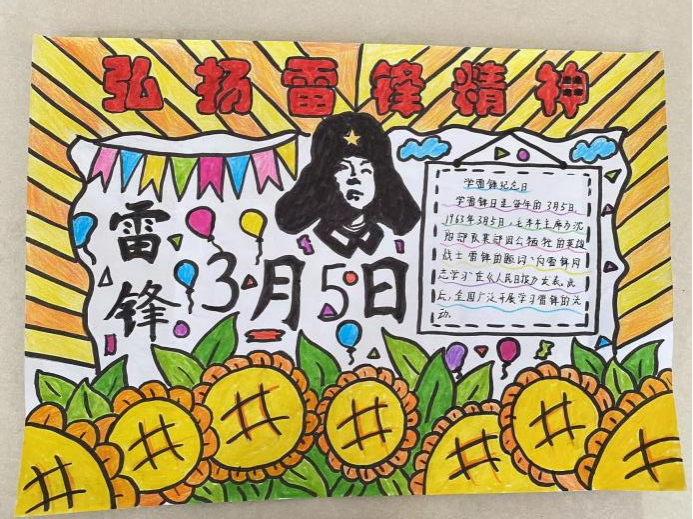 弘扬雷锋精神
雷锋
3月5日
学雷锋纪念日
学雷锋日是每年的3月5日。
1963年3月5日,毛泽东主席为沈
阳部队某部因公牺牲的英雄
战士雷锋的题词"向雷锋同
志学习"在《人民日报》发表。此
后,全国广泛开展学习雷锋的活
动。